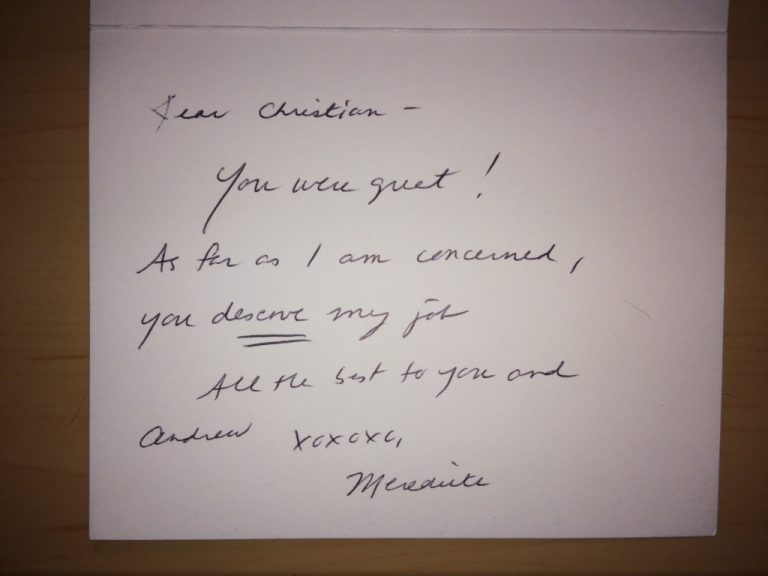 Dear Christian -
You were great!
As far as I am concerned,
you deserve my job
All the best to you and
Andrew xoxoxo,
Meredith